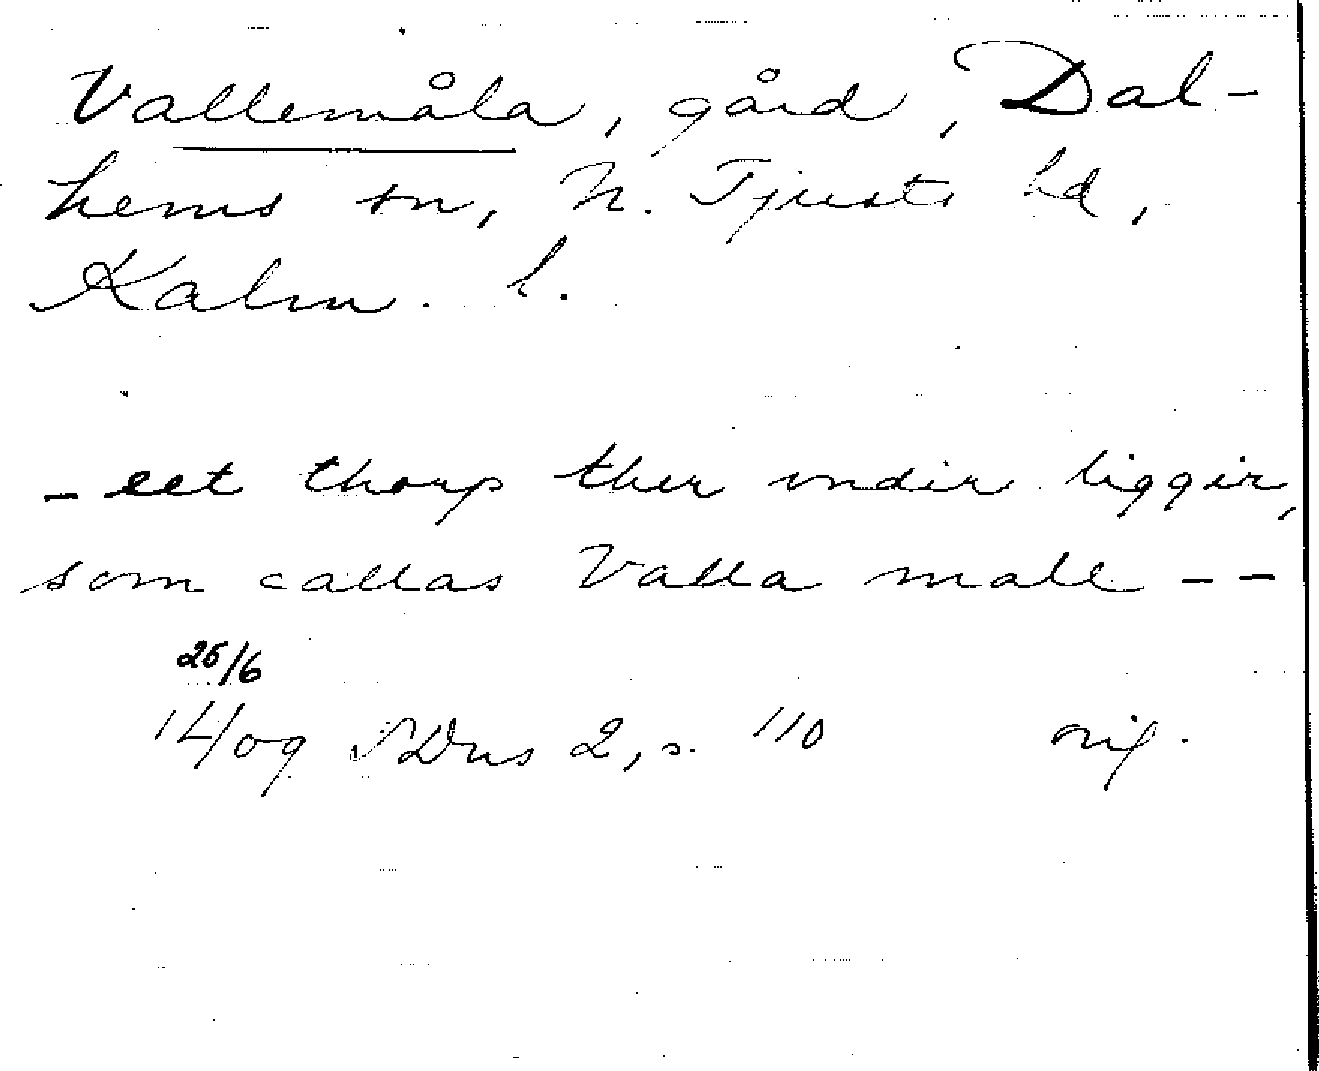 Vallemåla, gård, Dal-
hems sn, N. Tjusts hd,
Kalm. l.
- eet thorp ther vndir liggir,
som callas Valla mall - -
25/6
14/09 SDns 2, s. 110 orig.